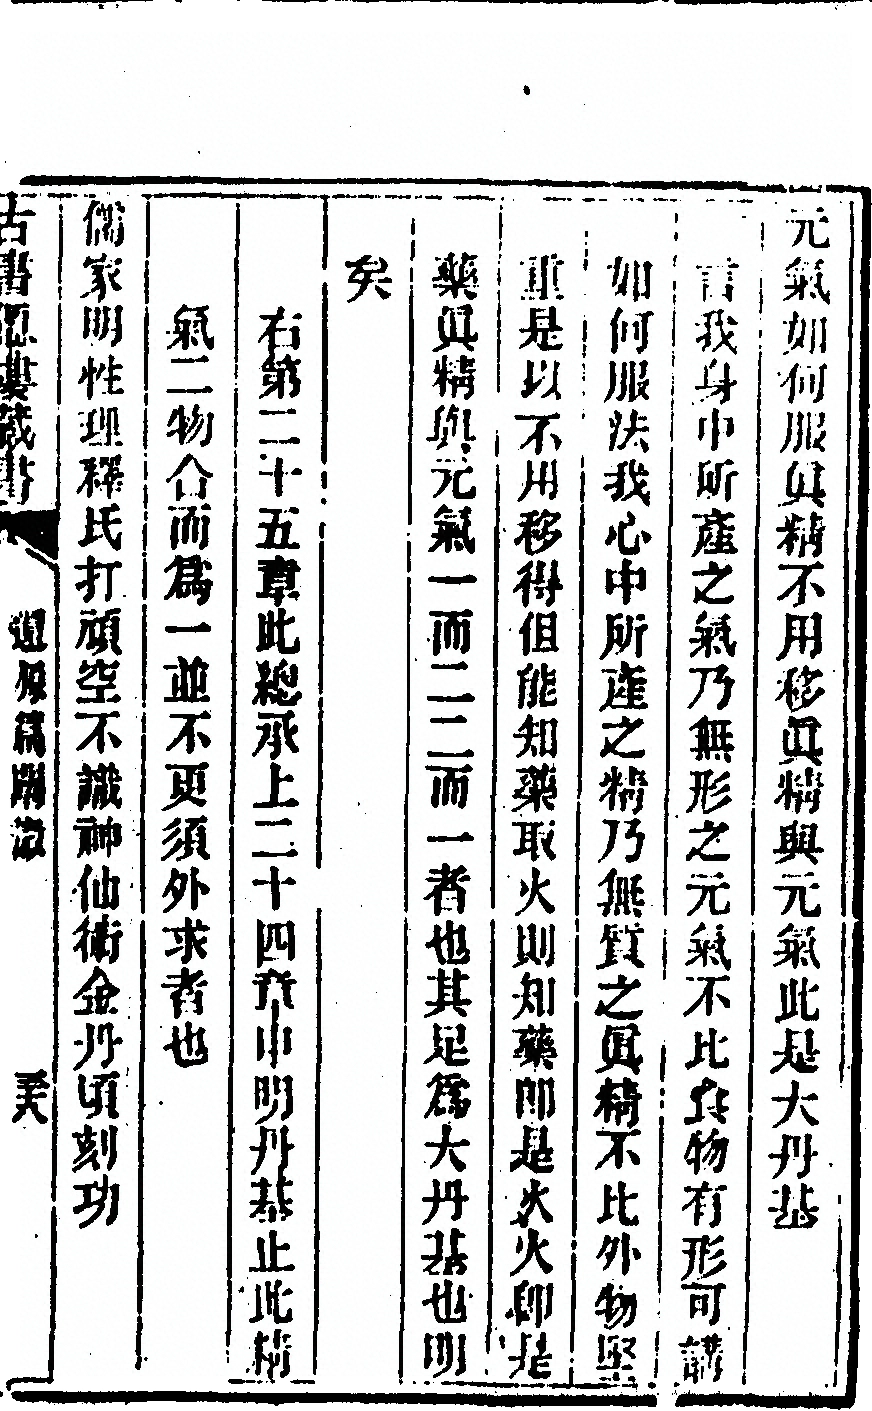 元氣如何服眞精不用移眞精與元氣此是大丹基
言我身中所產之氣乃無形之元氣不比食物有形可講
如何服法我心中所產之精乃無質之眞精不比外物堅
重是以不用移得但能知藥取火則知藥卽是火火卽是
藥眞精與元氣一而二二而一者也其足爲大丹基也明
矣
右第二十五章此總承上二十四章申明丹基止此精
氣二物合而爲一並不更須外求者也
儒家明性理釋氏打頑空不識神仙術金丹頃刻功
古書隱樓藏書
還源篇闡微